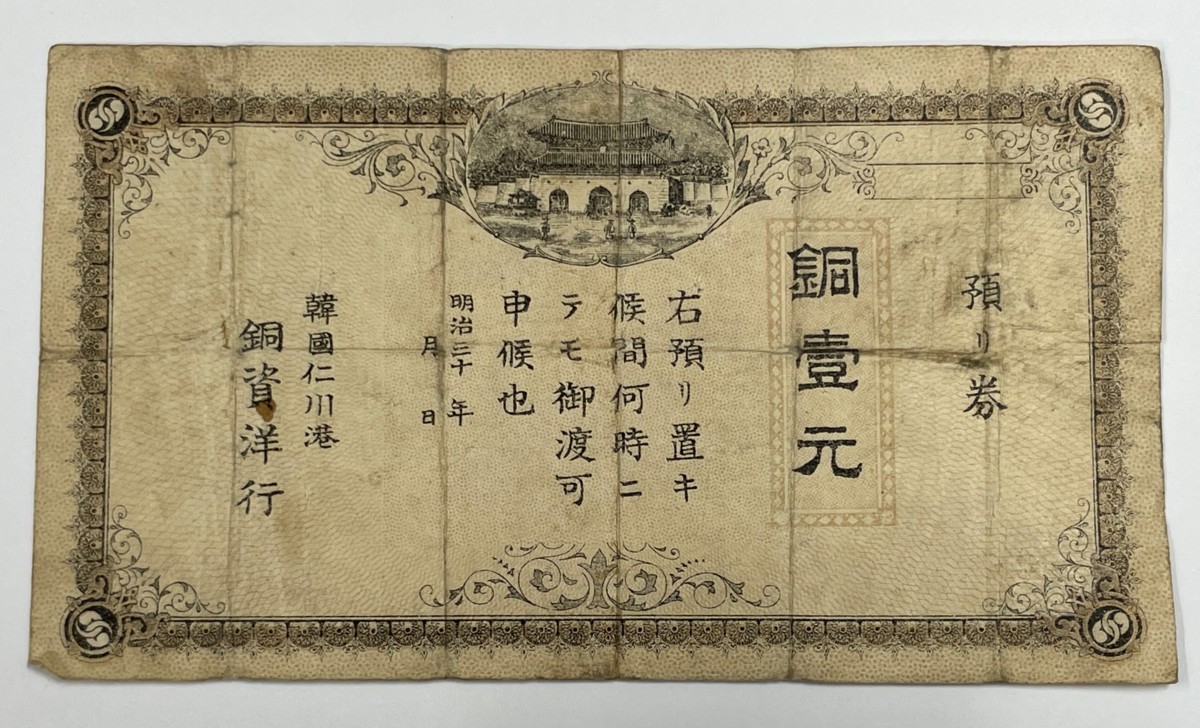 預リ券
銅壹元
右預リ置キ
候間何時ニ
テモ御渡可
申候也
明治三十 年
月 日
韓國仁川港
銅資洋行